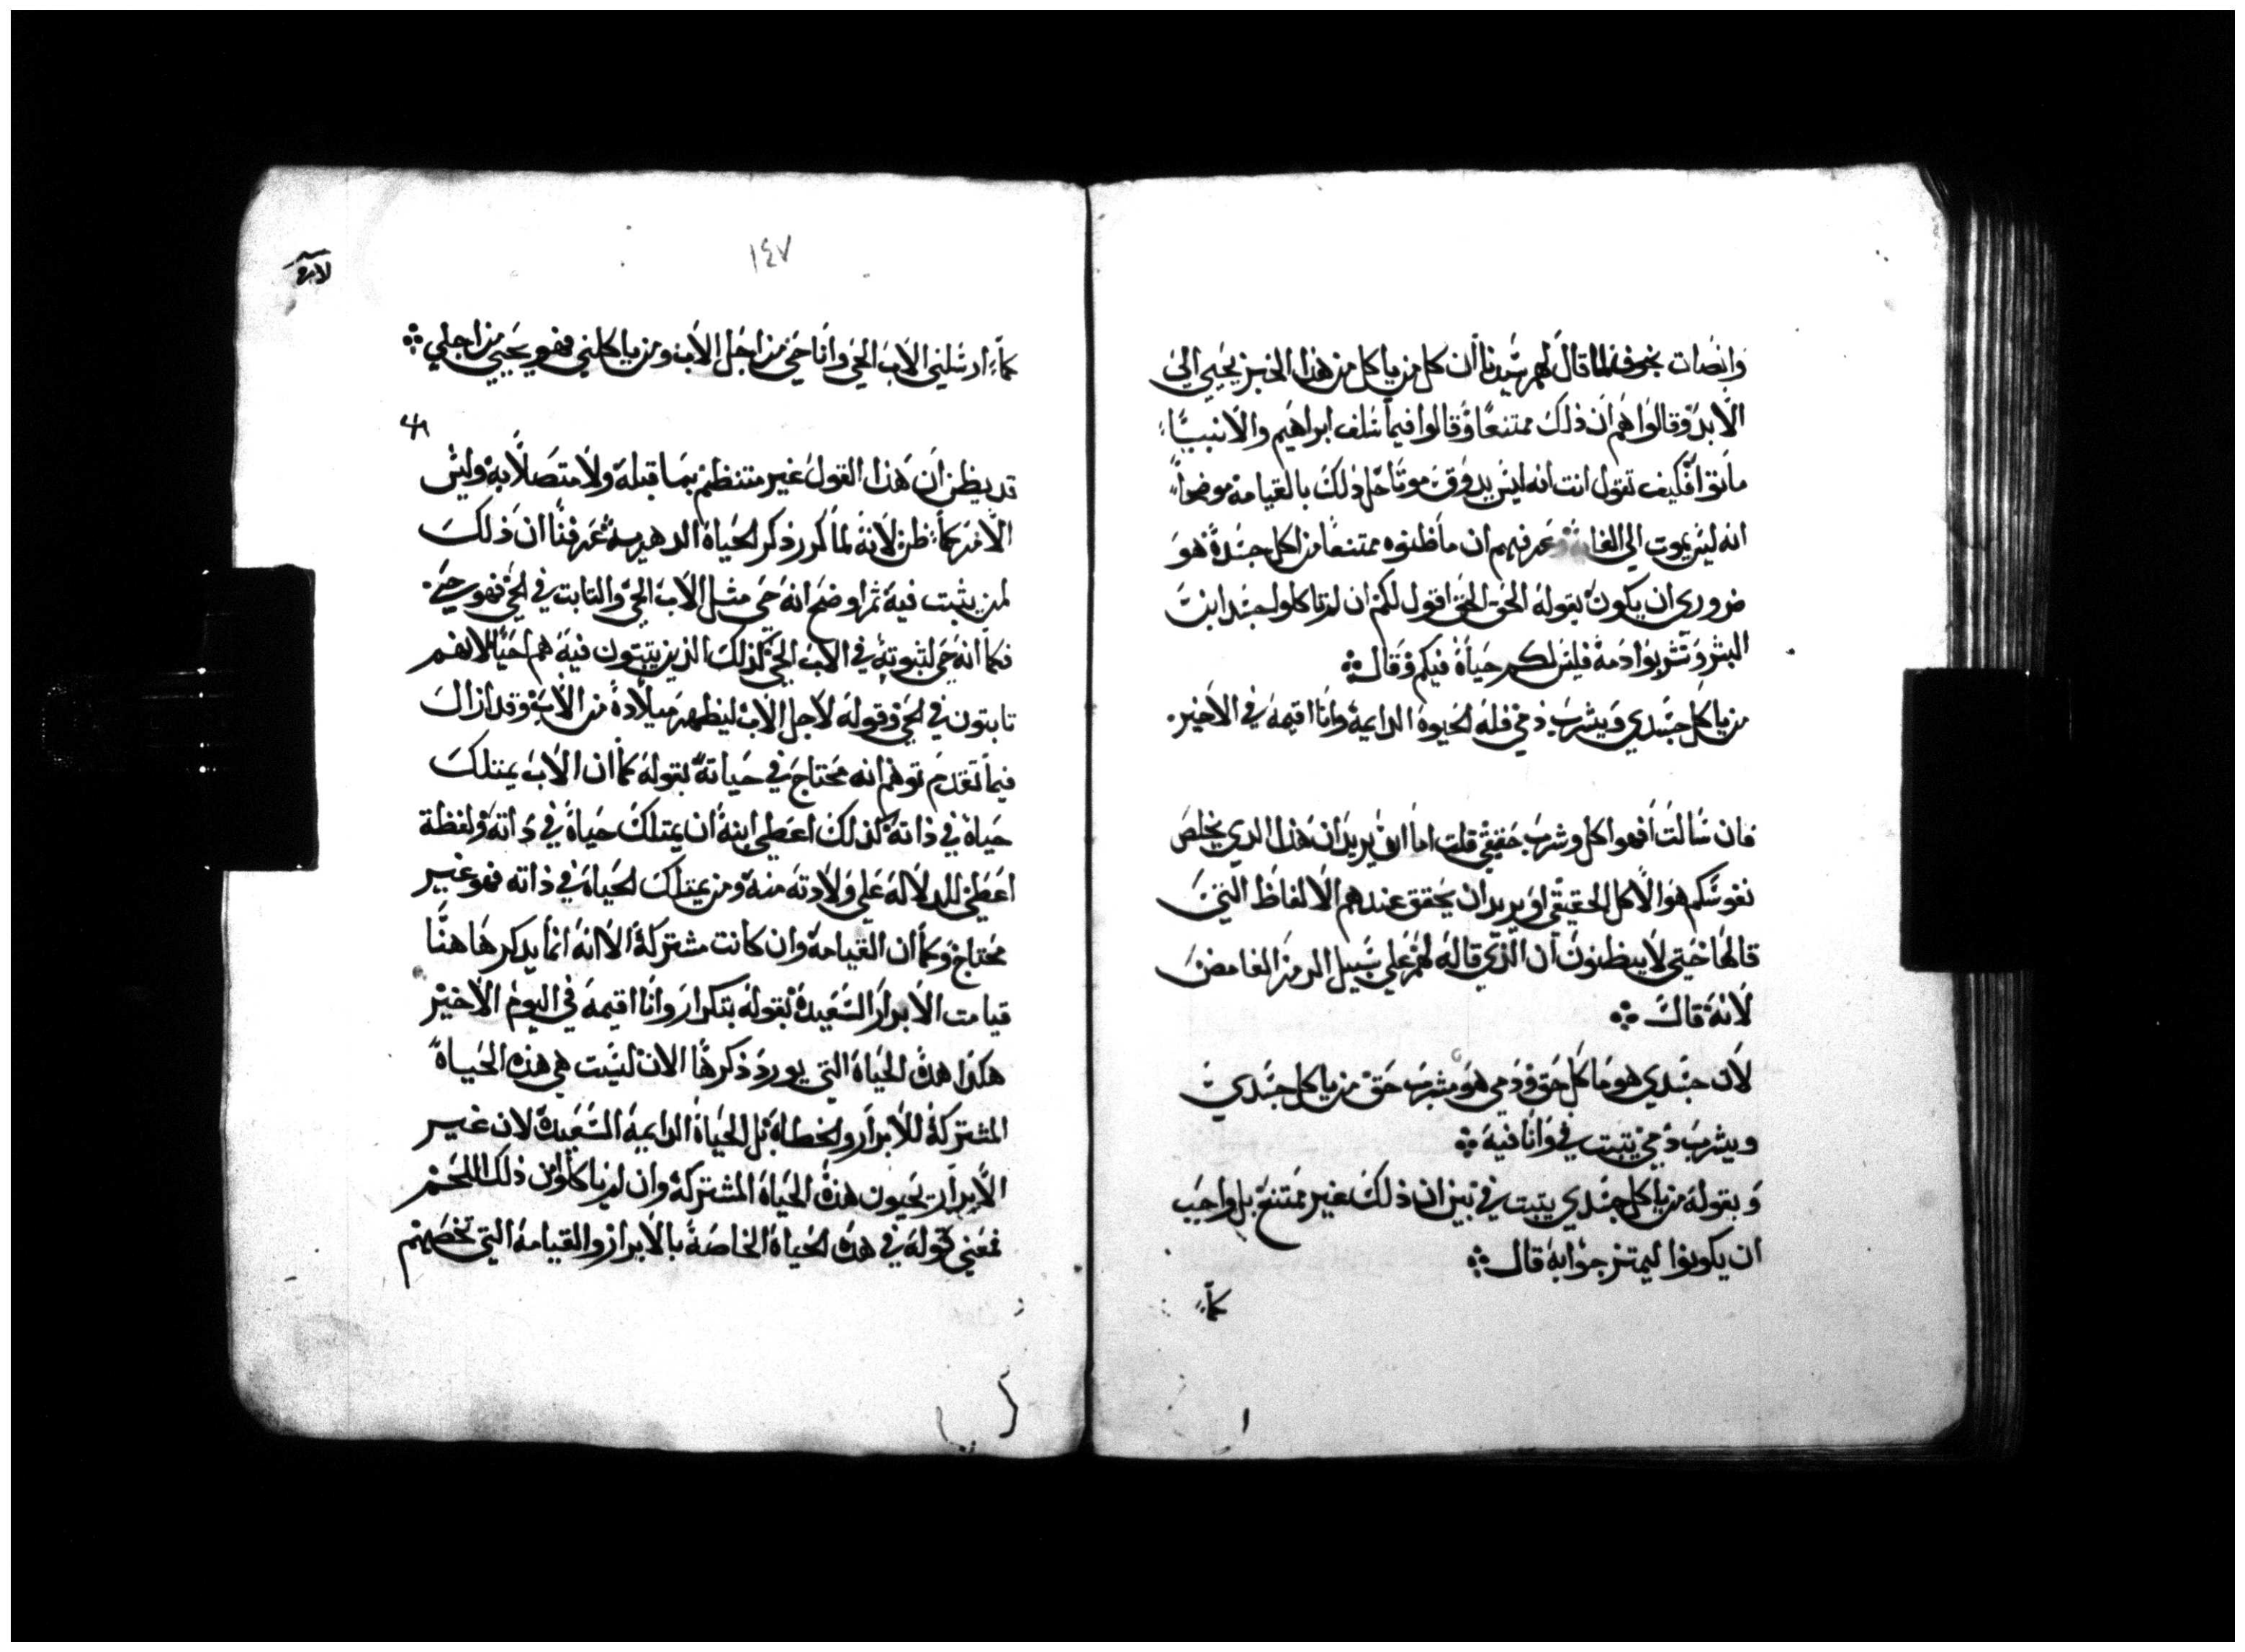 وانصات بخوف فلما قال لهم سيدنا أن كل من ياكل من هذا الخبز يحيي الي
الابد وقالوا هم ان ذلك ممتنعًا وقالوا فيما سلف ابراهيم والانبيا
ماتوا فكيف تقول انت انه ليس يدوق موتا حل ذلك بالقيامه موضحاً
انه ليس يموت الي الغايه وعرفهم ان ما ظنوه ممتنعاً من اكل جسده هو
ضروري ان يكون بقوله الحق الحق اقول لكم ان لم تاكلوا جسد ابن
البشر وتشربوا دمه فليس لكم حياة فيكم وقال
من ياكل جسدي ويشرب دمي فله الحيوه الدايمه وانا اقيمه في الاخير
فان سالت أفهوا كل وشرب حقيقي قلت اما انه يريد ان هذا الدي يخلص
نفوسكم هو الاكل الحقيقي او يريد ان يحقق عندهم الالفاظ التي
قالها حتي لا يظنون أن الذي قاله لهم علي سبيل الرمز الغامض
لانه قال
لان جسدي هو ماكل حق ودمي هو مشرب حق من ياكل جسدي
ويشرب دمي يتبت في وانا فيه
وبقوله من ياكل جسدي يتبت في بين ان ذلك غير ممتنع بل واجب
ان يكونوا ليمتز جوا به قال
كما
١٤٧
كما ارسلني الاب الحي وانا حي من اجل الاب ومن ياكلني فهو يحيي من اجلي
قد يظن أن هذا القول غير منتظم بما قبله ولا متصلا به وليس
الامر كما ظن لانه لما كرر ذكر الحياة الدهريه عرفنا ان ذلك
لمن يثبت فيه ثم اوضح انه حي مثل الاب الحي والتابت في الحي فهو حي
فكما انه حي لتبوته في الاب الحي كذلك الذين يتبتون فيه هم احيا لانهم
تابتون في الحي وقوله لاجل الاب ليظهر ميلاده من الاب وقد ازال
فيما تقدم توهم انه محتاج في حياته بقوله كما ان الاب يمتلك
حياه في ذاته كذلك اعطي ابنه ان يمتلك حياة في داته ولفظة
اعطي للدلاله علي ولادته منه ومن يمتلك الحياة في ذاته فهو غير
محتاج وكما ان القيامة وان كانت مشتركة الا انه انما يدكر ها هنا
قيامت الابرار السعيده بقوله بتكرار وانا اقيمه في اليوم الاخير
هكدا هده الحياة التي يورد ذكرها الان ليست هي هذه الحياة
المشتركة للابرار والخطاة بل الحياة الدايمه السعيدة لان غير
الابرار يحيون هذه الحياة المشتركة وان لم ياكلوا من ذلك اللحم
فمعني قوله في هده الحياة الخاصة بالابرار والقيامة التي تخصهم